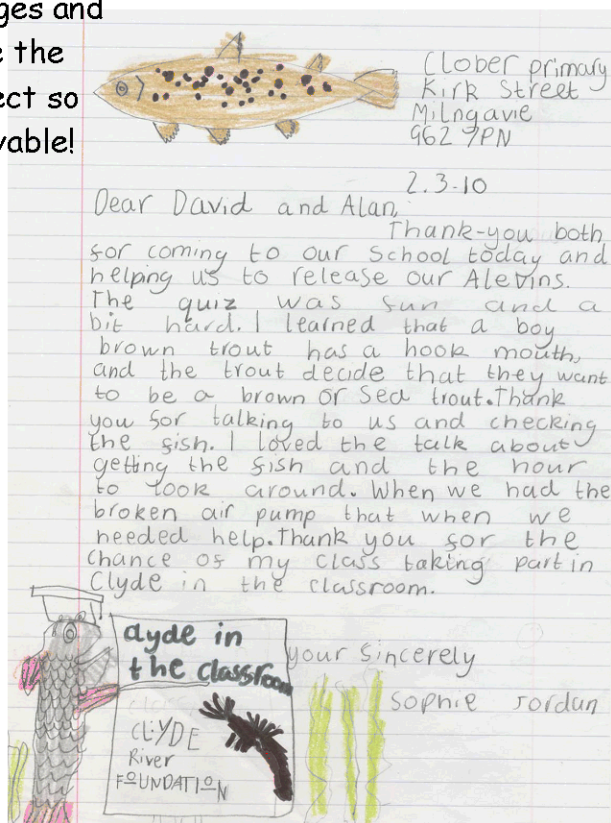 ges and
e the
ect so
vable!
Clober primary
Kirk Street
Milngavie
G62 7PN
2.3.10
Dear David and Alan,
Thank-you both
for coming to our School today and
helping us to release our Alevins.
The quiz was fun and a
bit hard. I learned that a boy
brown trout has a hook mouth,
and the trout decide that they want
to be a brown or Sea trout. Thank
you for talking to us and checking
the fish. I loved the talk about
getting the fish and the hour
to look around. When we had the
broken air pump that when we
needed help. Thank you for the
chance of my class taking part in
Clyde in the classroom.
your Sincerely
Sophie Jordan
clyde in
the classroom
CLYDE
River
FOUNDATION